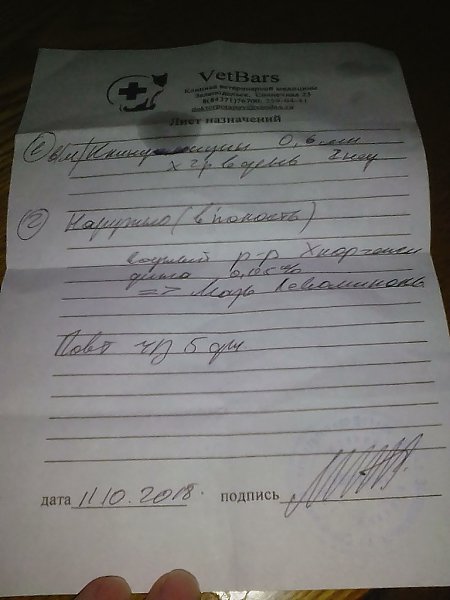 VetBars
Клиника ветеринарной медицины
8(84371)76700, 259-64-41
Лист назначений
① в/м 0,6 мл
х 2р в день
② Наружно (в полость)
водный р-р Хлоргекси
дина 0,05%
=> Мазь Левомиколь
Повт 5 дн
дата 11.10.2018. подпись